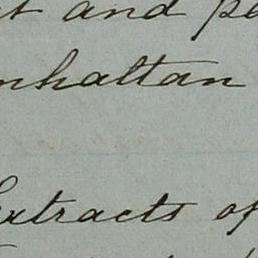 and
nhattan
Extracts of